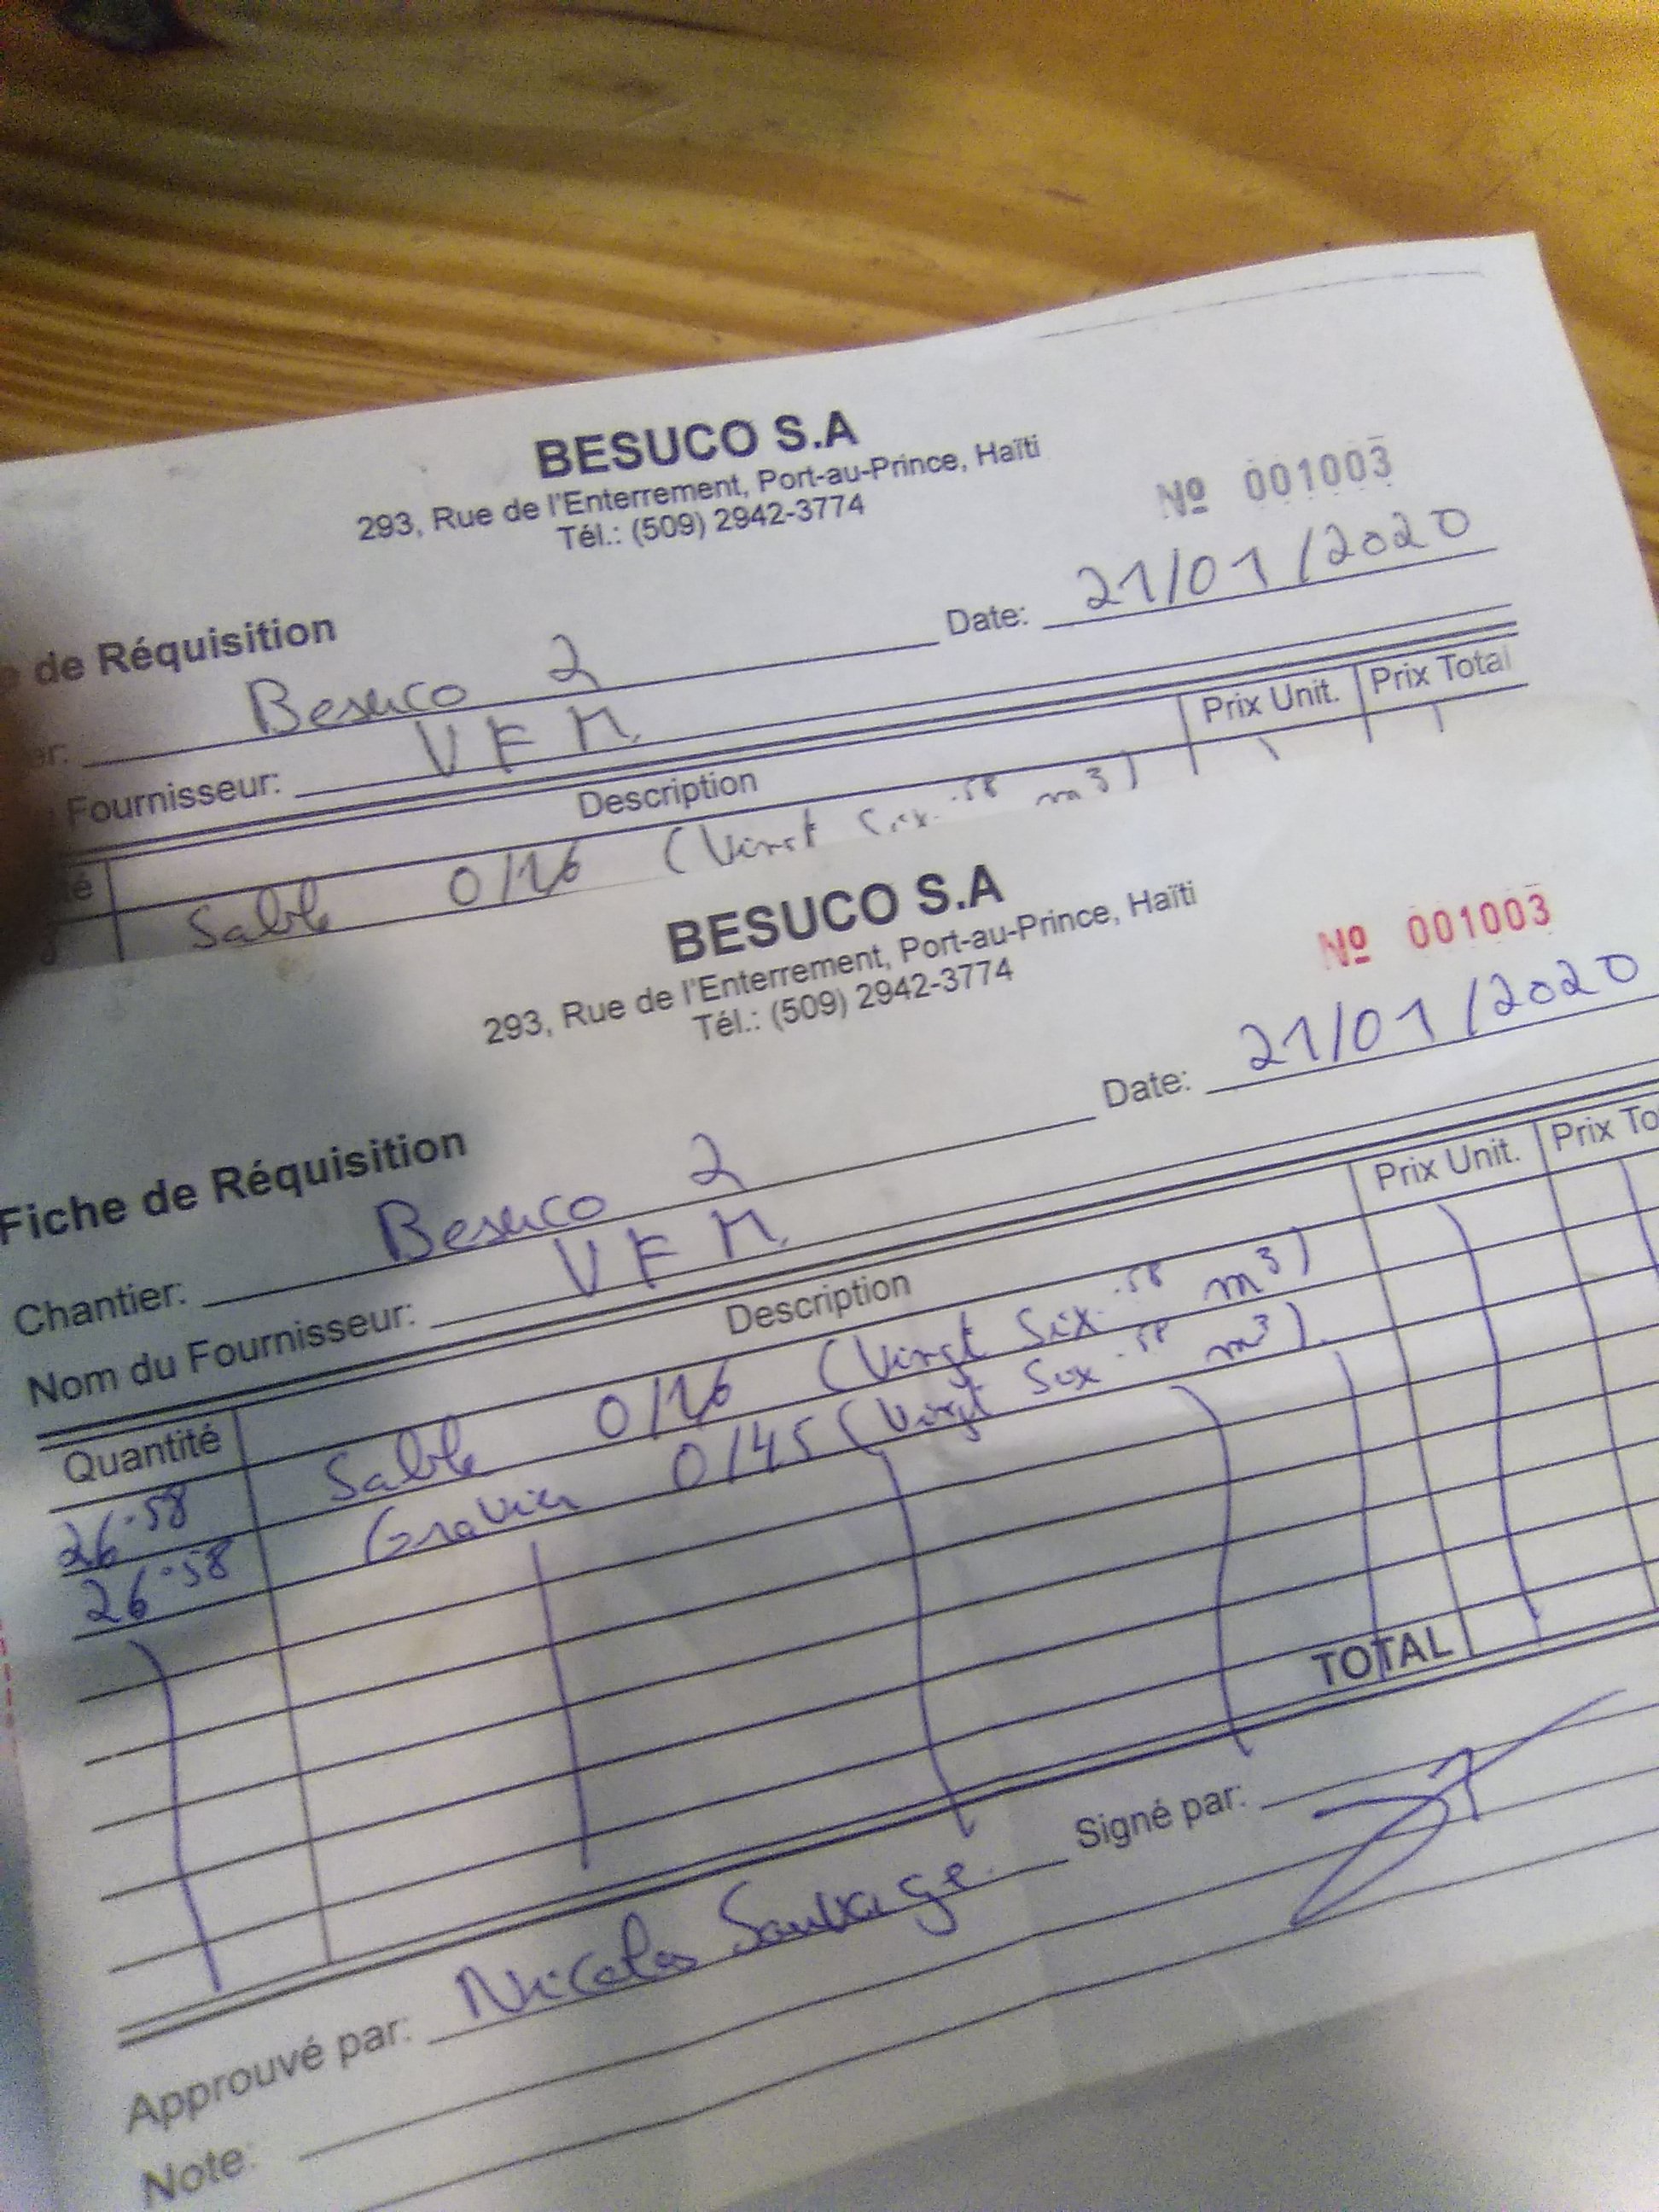 BESUCO S.A
293, Rue de l'Enterrement, Port-au-Prince, Haïti
Tél.: (509) 2942-3774
Nº 001003
de Réquisition
Date: 21/01/2020
er: Besuco 2
Fournisseur: V F M.
té Description Prix Unit. Prix Total
Sable 0/16 (Vingt Six .58 m3)
BESUCO S.A
293, Rue de l'Enterrement, Port-au-Prince, Haïti
Tél.: (509) 2942-3774
Nº 001003
Fiche de Réquisition
Date: 21/01/2020
Chantier: Besuco 2
Nom du Fournisseur: V F M.
Quantité Description Prix Unit. Prix To
26.58 Sable 0/16 (Vingt Six .58 m3)
26.58 Gravier 0/45 (Vingt Six .58 m3).
TOTAL
Approuvé par: Nicolas Sauvage. Signé par:
Note: